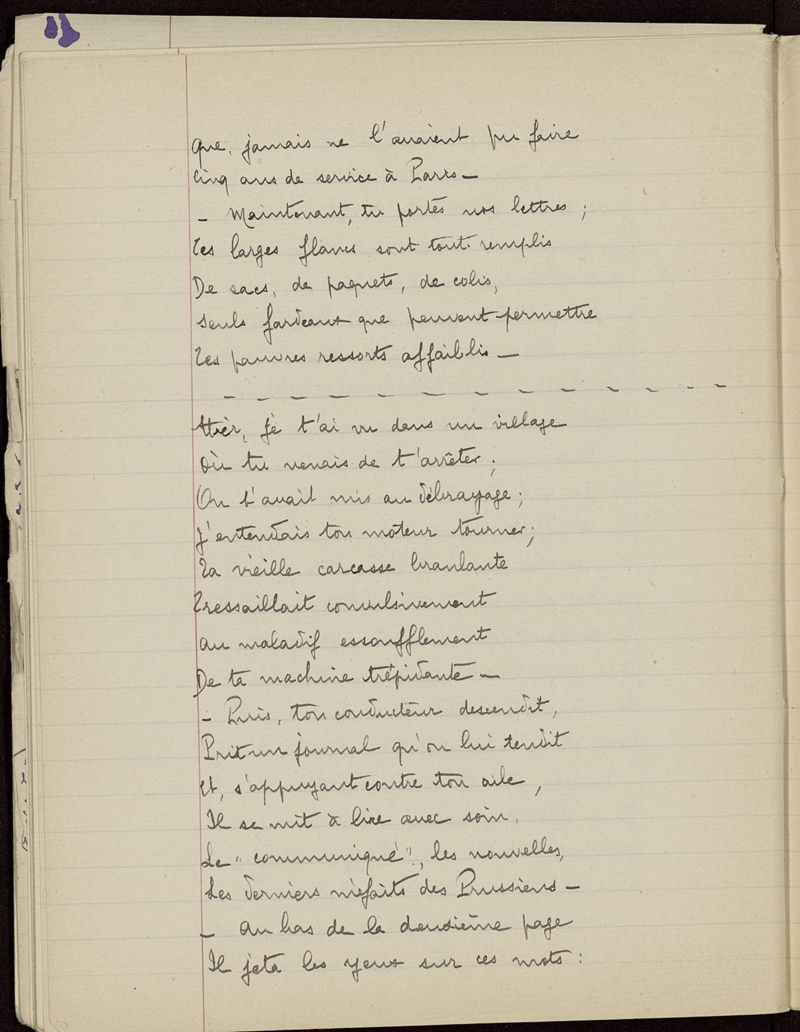 Que, jamais ne l'avaient pu faire
Cinq ans de service à Paris —
— Maintenant, tu portes nos lettres ;
Tes larges flancs sont tout remplis
De sacs, de paquets, de colis,
Seuls fardeaux que peuvent permettre
Tes pauvres ressorts affaiblis —
— — — — — — — — — — — — — — —
Hier, je t'ai vu dans un village
Où tu venais de t'arrêter ;
On t'avait mis au débrayage ;
J'entendais ton moteur tourner ;
Ta vieille carcasse branlante
Tressaillait convulsivement
Au maladif essoufflement
De ta machine trépidante —
— Puis, ton conducteur descendit,
Prit un journal qu'on lui tendit
Et, s'appuyant contre ton aile,
Il se mit à lire avec soin,
Le "communiqué", les nouvelles,
Les derniers méfaits des Prussiens —
— Au bas de la deuxième page
Il jeta les yeux sur ces mots :